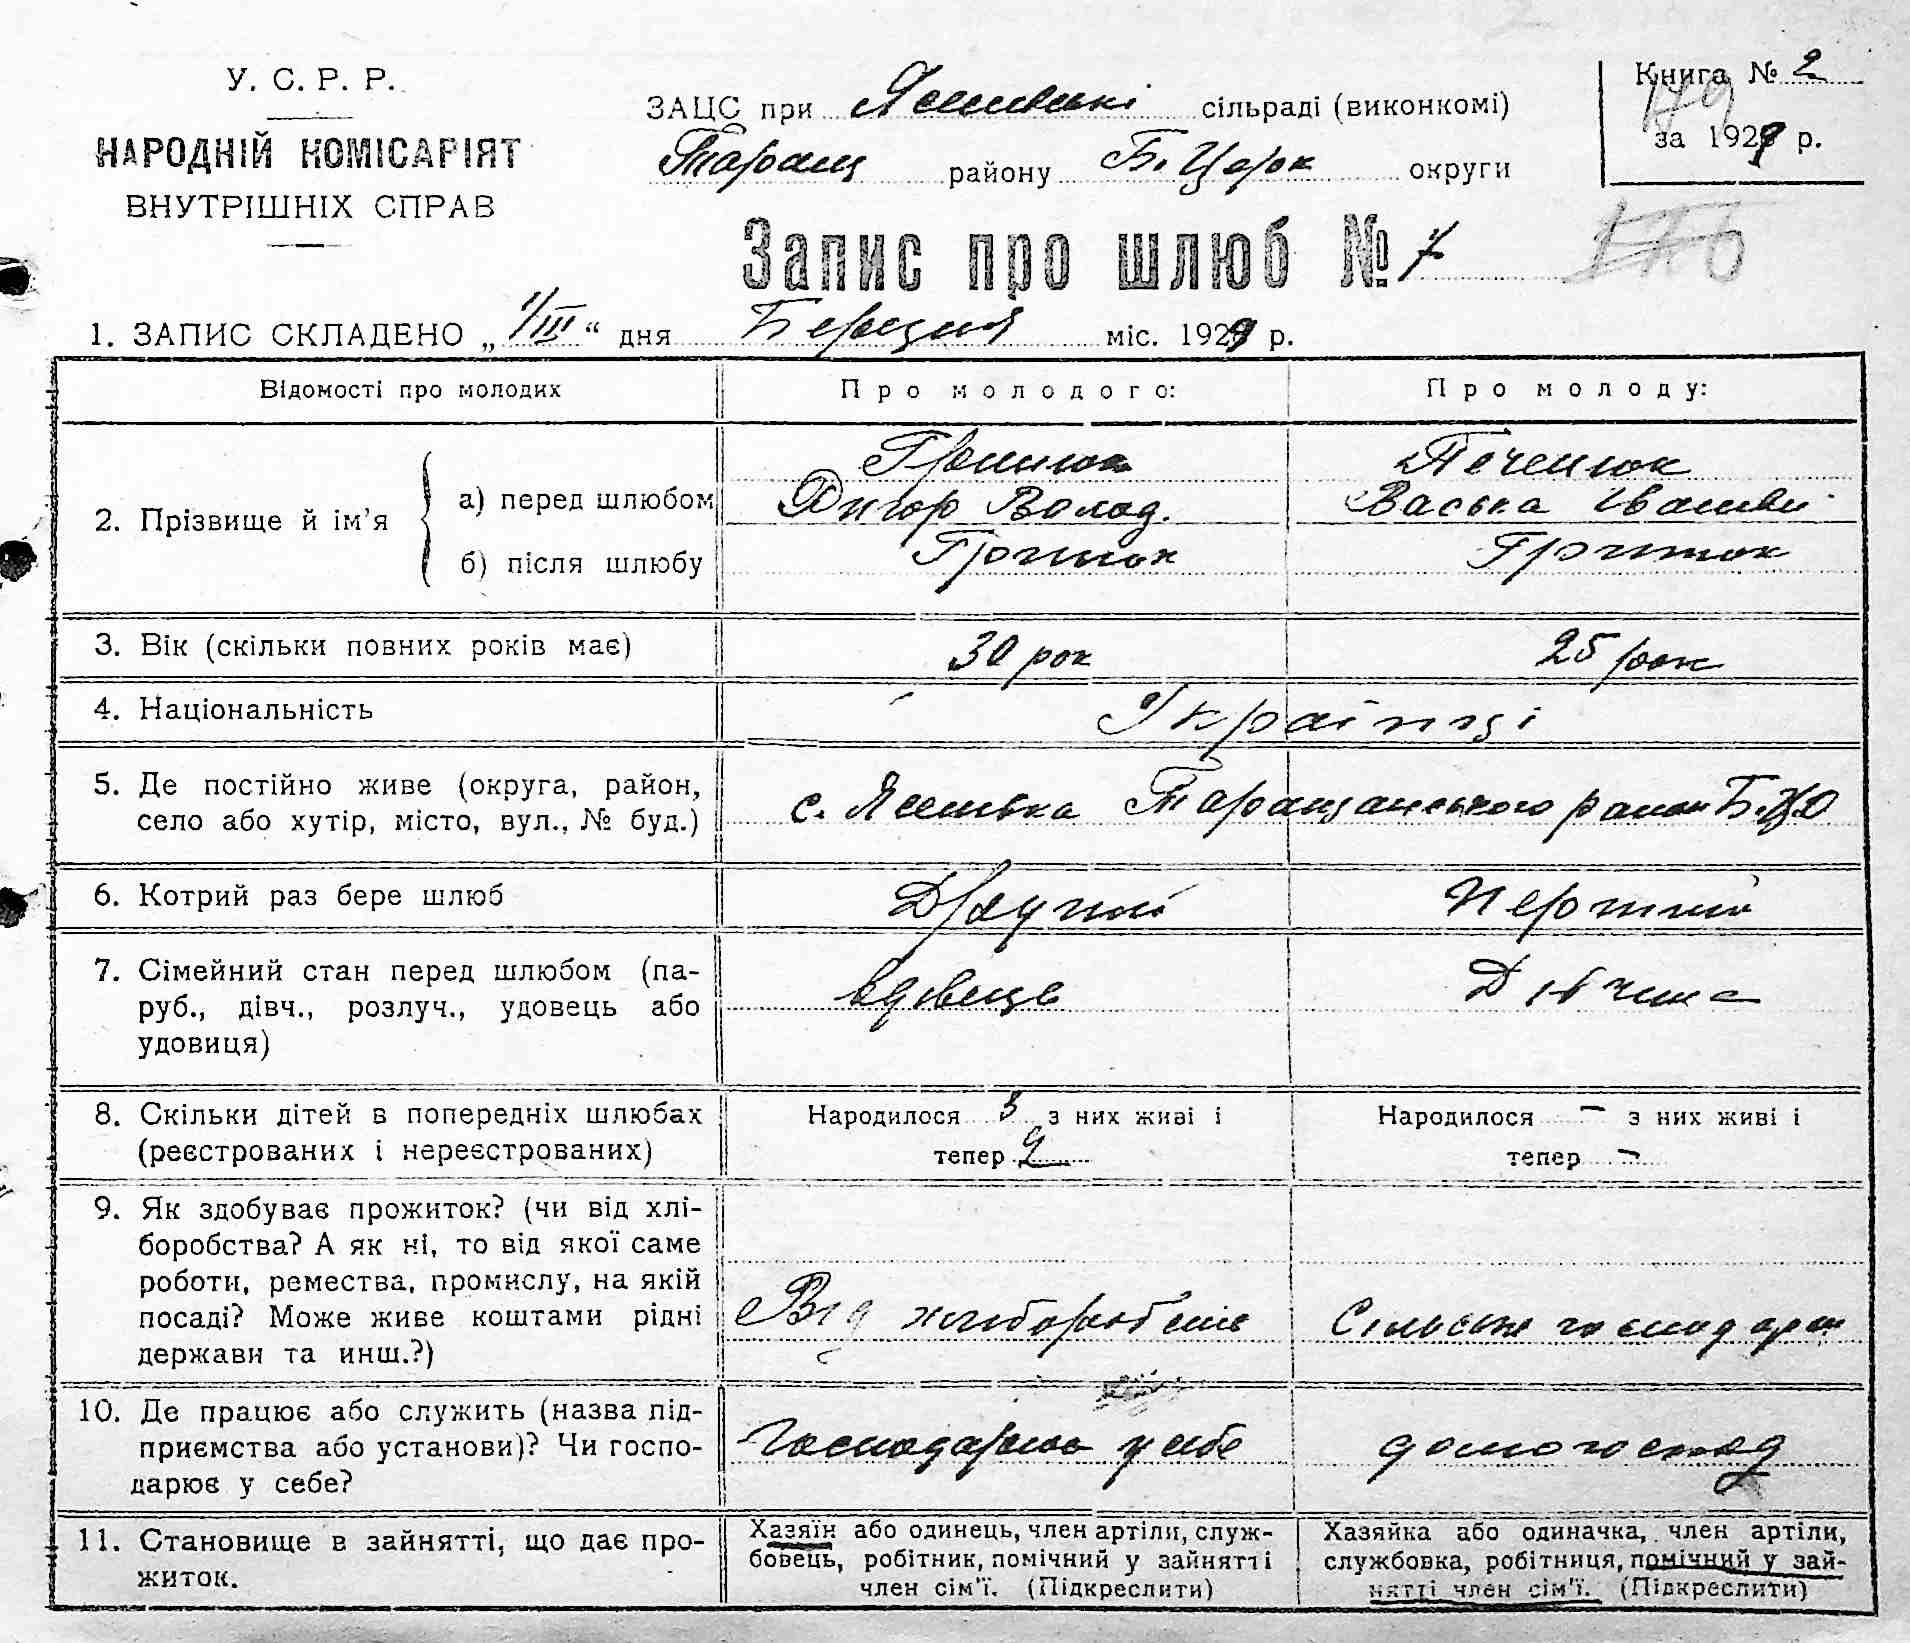 У. С. Р. Р.
НАРОДНІЙ КОМІСАРІЯТ
ВНУТРІШНІХ СПРАВ
ЗАЦС при сільраді (виконкомі)
Таращ району Б. Церк округи
Книга № 2
за 1929 р.
Запис про шлюб № 7
1. ЗАПИС СКЛАДЕНО „1/III“ дня Березня міс. 1929 р.
Відомості про молодих
Про молодого:
Про молоду:
2. Прізвище й ім’я
а) перед шлюбом
б) після шлюбу
Волад.
Печенюк
Васька
3. Вік (скільки повних років має)
30 рок
25 рок
4. Національність
Українці
5. Де постійно живе (округа, район,
село або хутір, місто, вул., № буд.)
с. Ясенівка Таращанського район Б.Ц.О
6. Котрий раз бере шлюб
Другий
Перший
7. Сімейний стан перед шлюбом (па-
руб., дівч., розлуч., удовець або
удовиця)
вдівець
Дівчина
8. Скільки дітей в попередніх шлюбах
(реєстрованих і нереєстрованих)
Народилося 3 з них живі і
тепер 2
Народилося – з них живі і
тепер –
9. Як здобуває прожиток? (чи від хлі-
боробства? А як ні, то від якої саме
роботи, ремества, промислу, на якій
посаді? Може живе коштами рідні
держави та инш.?)
Від
10. Де працює або служить (назва під-
приємства або установи)? Чи госпо-
дарює у себе?
у себе
домогоспод
11. Становище в зайнятті, що дає про-
житок.
Хазяїн або одинець, член артіли, служ-
бовець, робітник, помічний у зайнятті
член сім’ї. (Підкреслити)
Хазяйка або одиначка, член артіли,
службовка, робітниця, помічний у зай-
нятті член сім’ї. (Підкреслити)